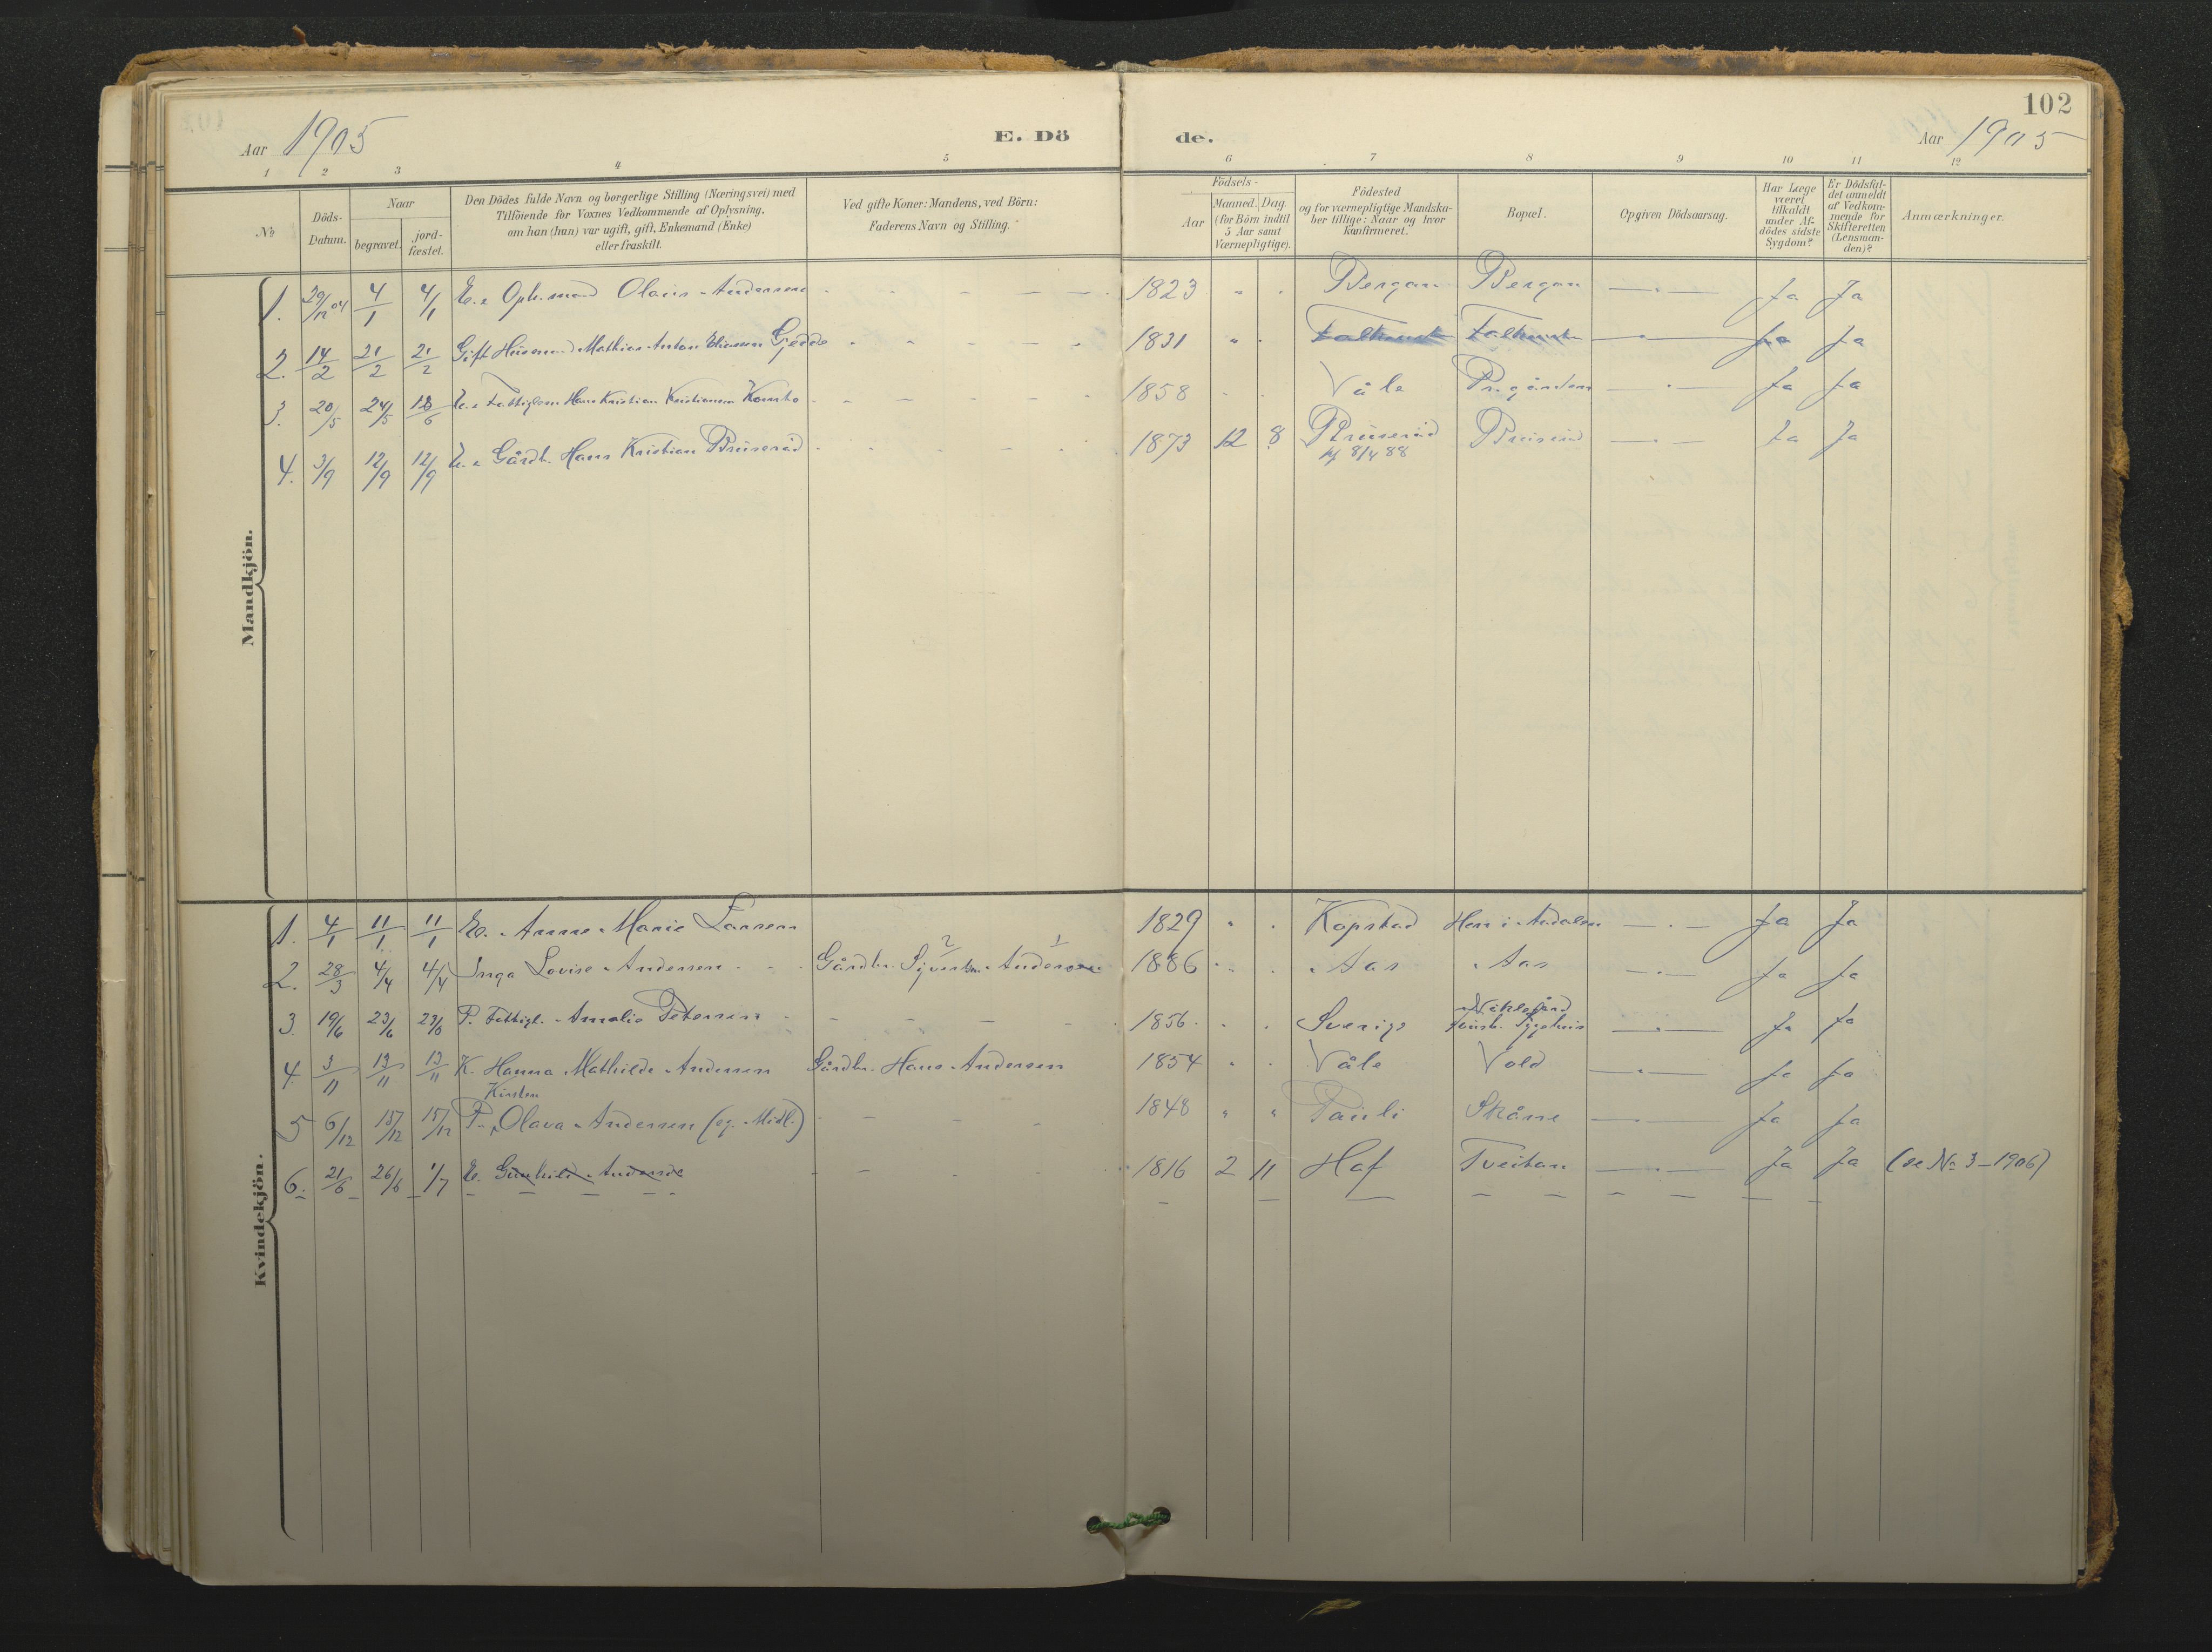 102
Aar 1905 E. Dö de. Aar 1905
1 2 3 4 5 6 7 8 9 10 11 12
No
Döds-Datum.
Naar
begravet.
jord-fæstet.
Den Dödes fulde Navn og borgerlige Stilling (Næringsvei) med
Tilföiende for Voxnes Vedkommende af Oplysning,
om han (hun) var ugift, gift, Enkemand (Enke)
eller fraskilt.
Ved gifte Koner: Mandens, ved Börn:
Faderens Navn og Stilling.
Födsels-
Aar
Maaned. Dag.
(for Börn indtil
5 Aar samt
Værnepligtige).
Födested
og for værnepligtige Mandska-
ber tillige: Naar og hvor
Konfirmeret.
Bopæl.
Opgiven Dödsaarsag.
Har Læge
været
tilkaldt
under Af-
dödes sidste
Sygdom?
Er Dödsfal-
det anmeldt
af Vedkom-
mende for
Skifteretten
(Lensman-
den)?
Anmærkninger.
Mandkjön.
1. 29/12 04 4/1 4/1 E. Oph.mand Olaus Andersen - - - - 1823 " . Bergan Bergan — . — Ja Ja
2. 14/2 21/2 21/2 Gift Husmand Mathias Anton Eliasen Gjedde 1831 " . — . — Ja Ja
3. 20/5 24/5 18/6 Fattiglem Hans Kristian Kristiansen 1858 . . Våle Pr.gården — . — Ja Ja
4. 3/9 12/9 12/9 Gårdb. Hans Kristian Bruserød 1873 12 8 Bruserød Bruserød — . — Ja Ja
8/4 88
Kvindekjön.
1. 4/1 11/1 11/1 E. Anne Marie Larsen 1829 " . Kopstad Hen i Andalen — . — Ja Ja
2 1
2. 28/3 4/4 4/4 Inga Lovise Andersen Gårdbr. Sjvertsen Andersen 1886 . . Aas Aas — . — Ja Ja
3 19/6 23/6 23/6 P. Fattigl. Amalie Petersen - - - 1856 . . Sverige — . — Ja Ja
4 3/11 13/11 13/11 K. Hanna Mathilde Andersen Gårdbr. Hans Andersen 1854 . . Våle Vold — . — Ja Ja
Kirsten
5 6/12 15/12 15/12 P. Olava Andersen (eg. Midl.) - - - 1848 " " Pauli Skåne — . — Ja Ja
6. 21/6 26/6 1/7 E. Gunhild Andersd. - - 1816 2 11 Haf Tveitan — . — Ja Ja (se No 3-1906)